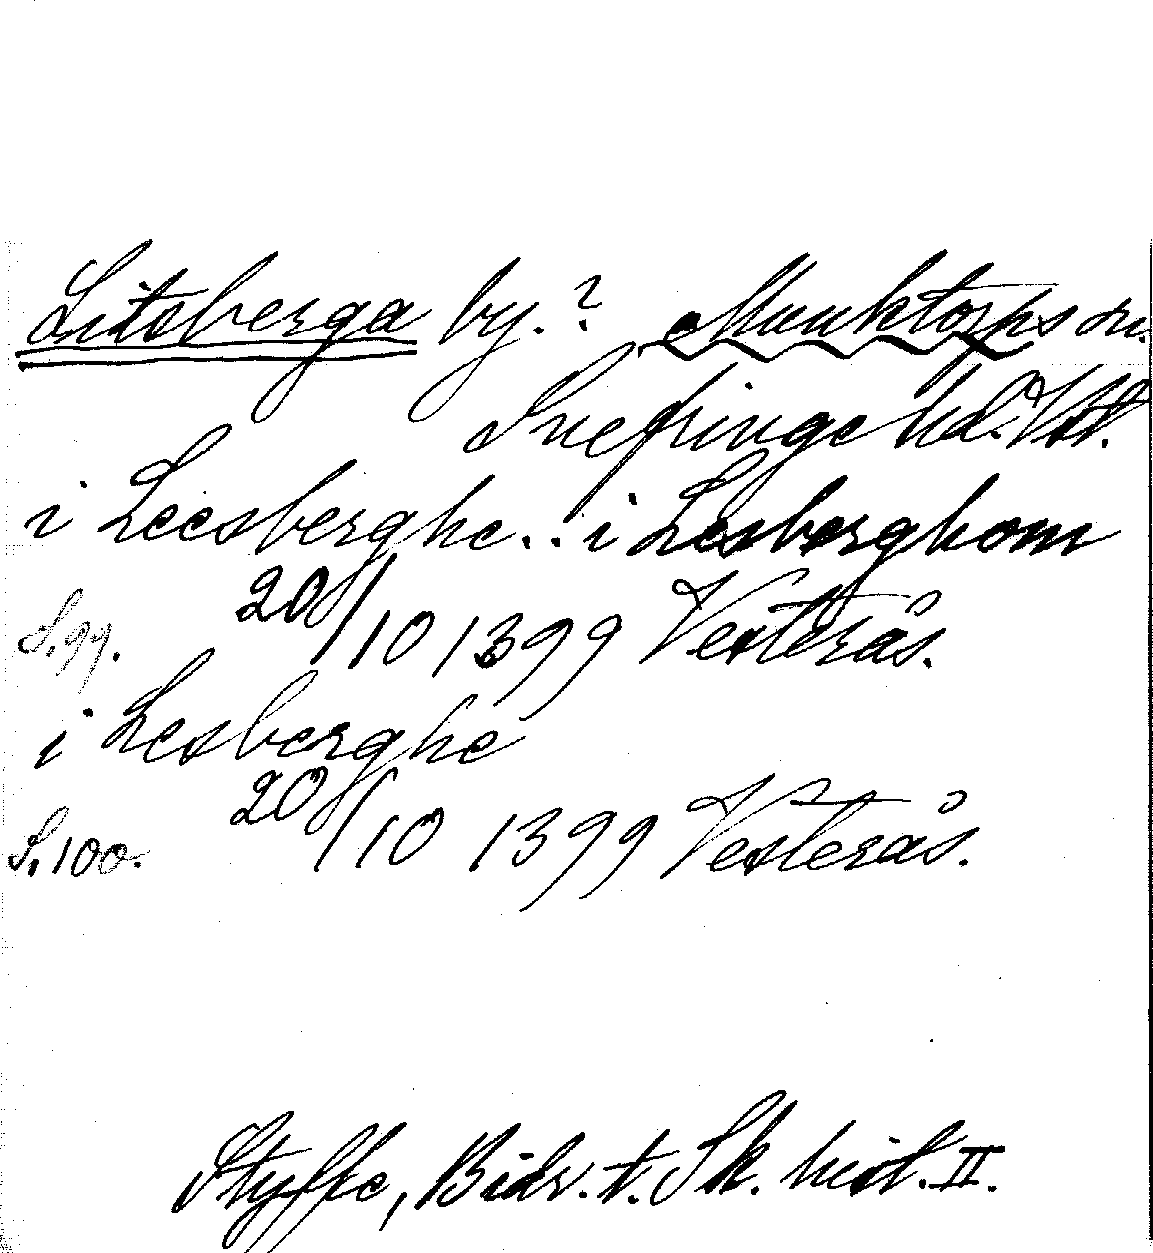 Litsberga by. ? Munktorps sn.
Snefringe hd. Vstm.
i Leesberghe... i Lesberghom
S. 99. 20/10 1399 Vesterås.
i Lesberghe
S. 100. 20/10 1399 Vesterås.
Styffe, Bidr. t. Sk. hist. II.